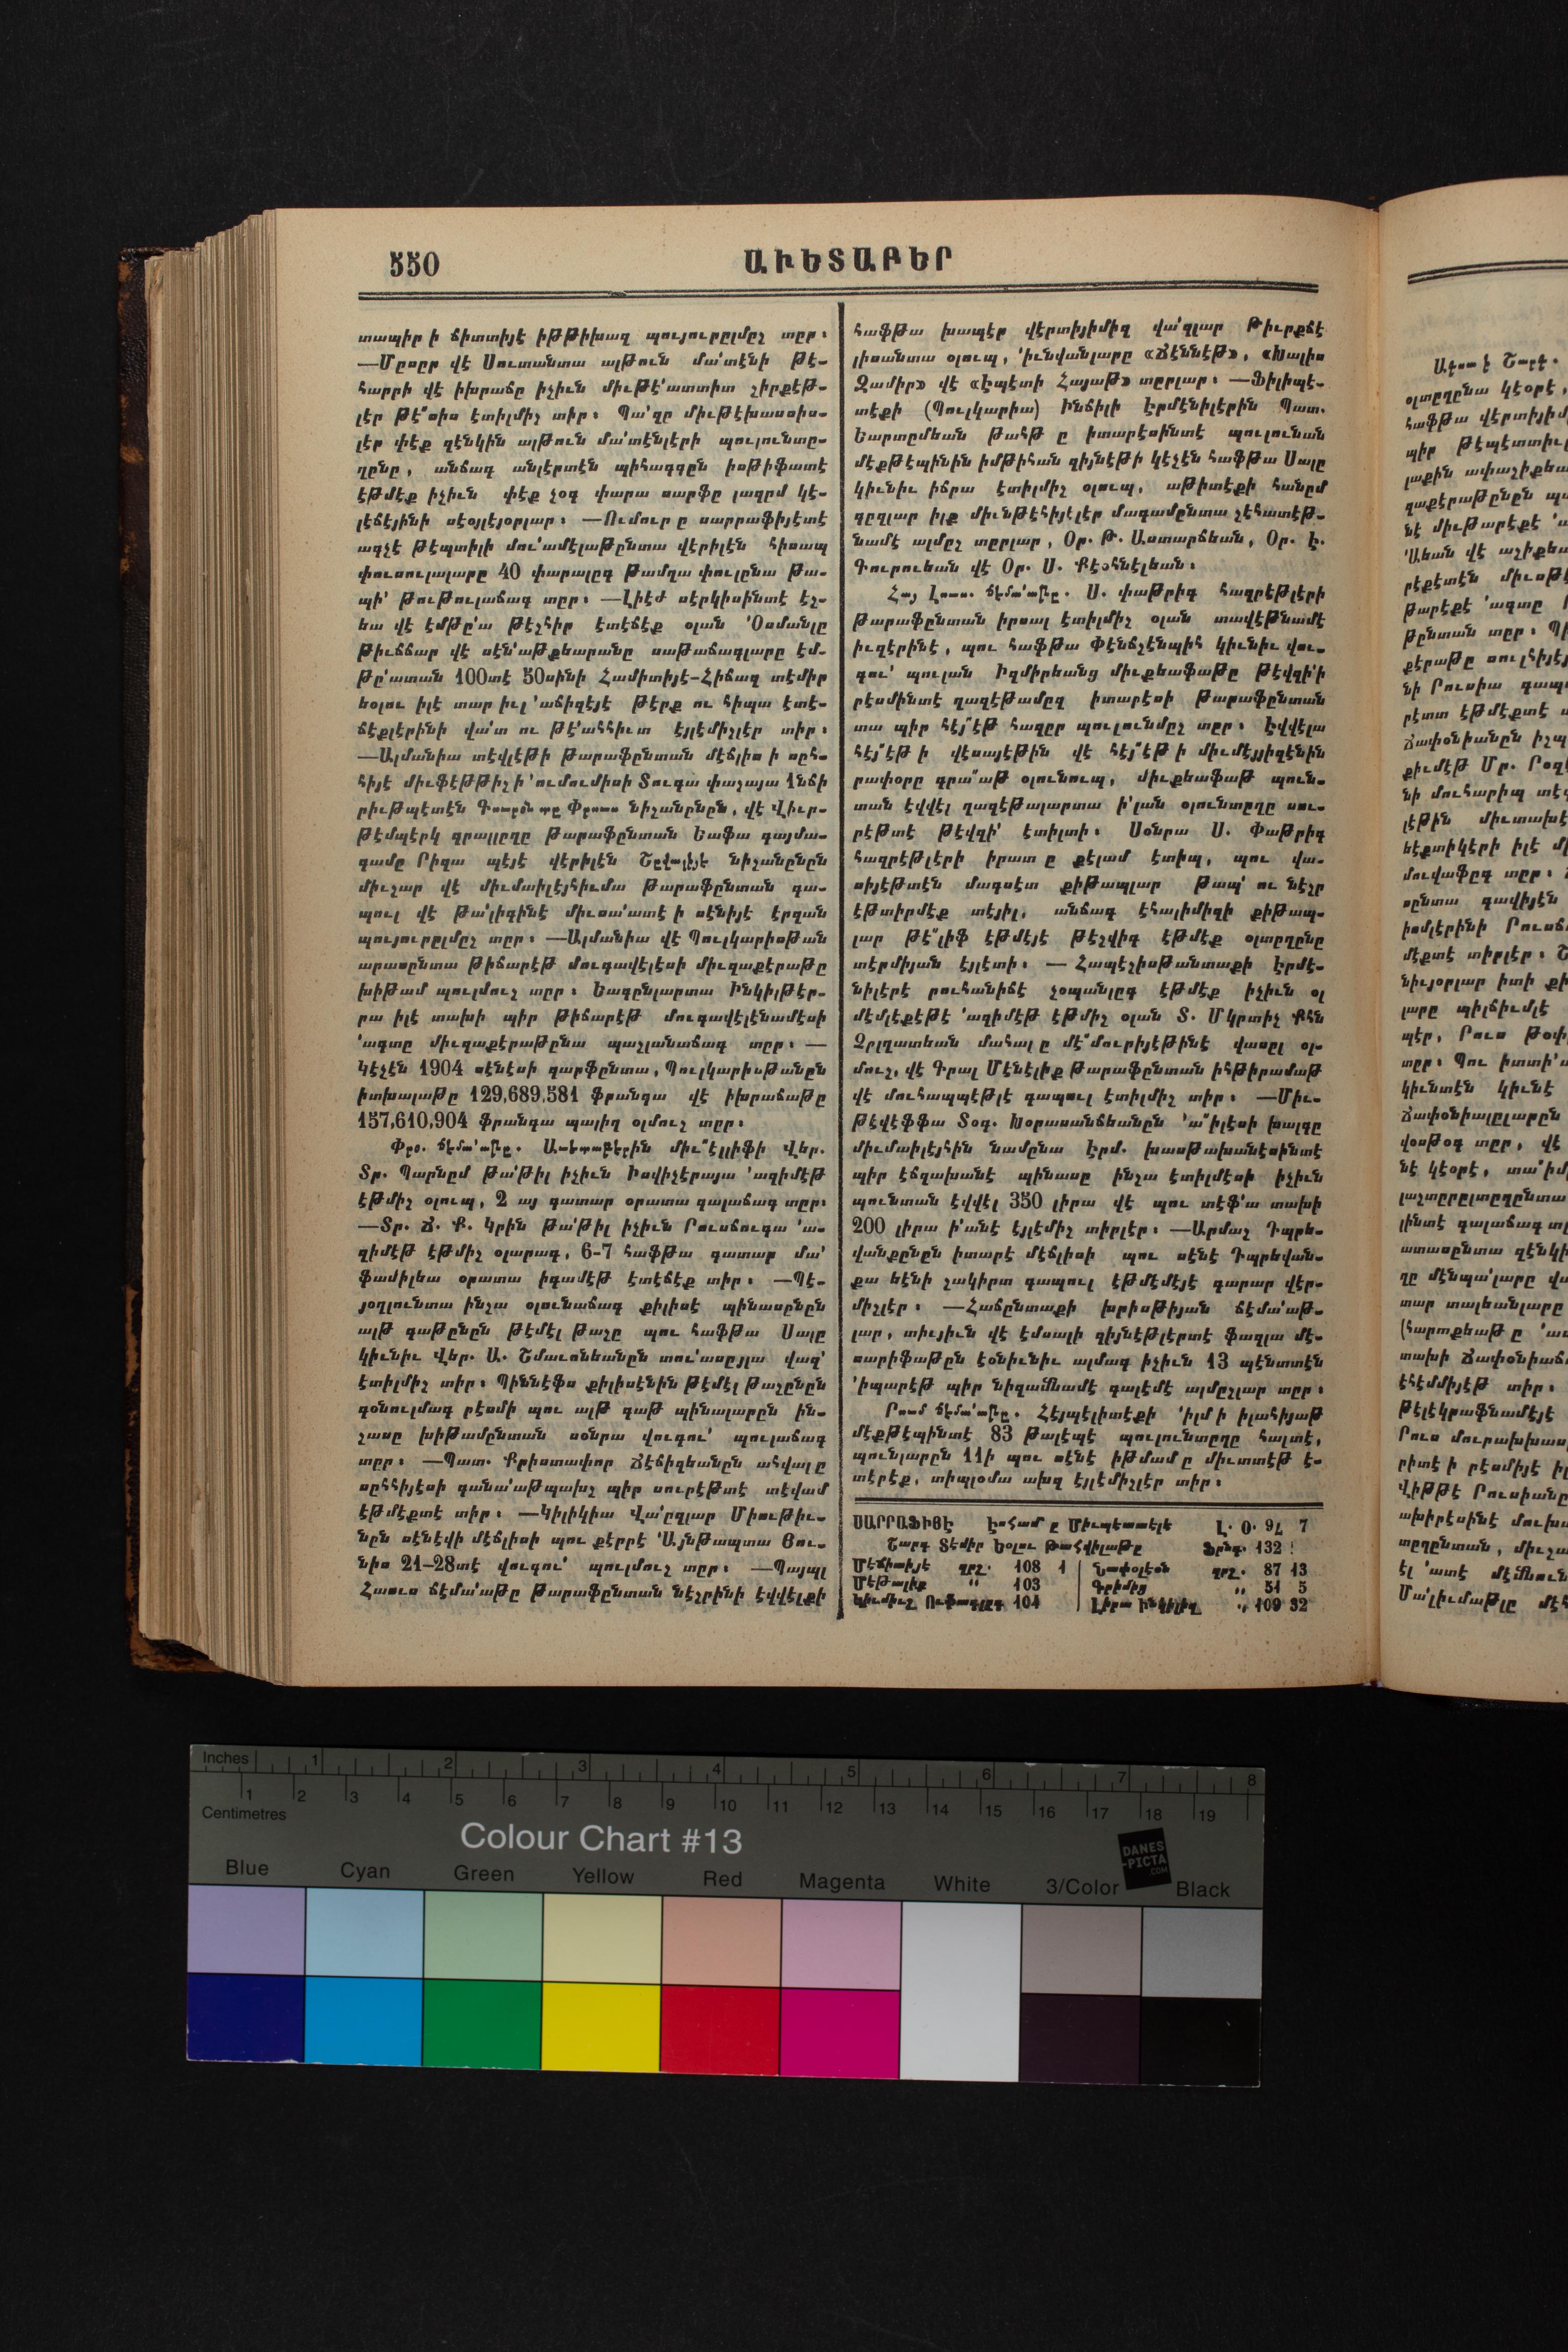 550
ԱՒԵՏԱԲԵՐ
տապիր ի ճիտտիյէ իԹԹիխազ պույուրըլմըշ տըր։
—Մըսըր վէ Սուտանտա ալթուն մա՛տէնի թէ-
հարրի վէ իխրաճը իչիւն միւթէ՛ատտիտ շիրքէթ-
լէր թէ՛՛սիս էտիլմիշ տիր։ Պա՛զը միւթէխասսիս-
լէր փէք զէնկին ալթուն մա՛տէնլէրի պուլունտը-
ղընը, անճագ անլէրտէն պիհագգըն իսթիֆատէ
էթմէք իչիւն փէք չօգ փարա սարֆը լազըմ կէ-
լէճէյինի սէօյլէյօրլար։ —Ումուր ը սարրաֆիյէտէ
ագչէ թէպտիլի մու՛ամէլաթընտա վէրիլէն հիսապ
փուսուլալարը 40 փարալըգ թամղա փուլընա թա-
պի՛ թութուլաճագ տըր։ —Լիէժ սէրկիսինտէ էշ-
եա վէ էմթը՛ա թէշհիր էտէճէք օլան ՛Օսմանլը
թիւճճար վէ սէն՛աթքեարանը սաթաճագլարը էմ-
թը՛ատան 100տէ 50սինի Համիտիյէ-Հիճազ տէմիր
եօլու իլէ տար իւլ ՛աճիզէյէ թէրք ու հիպա էտէ-
ճէքլէրինի վա՛տ ու թէ՛ահհիւտ էյլէմիշլէր տիր։
—Ալմանիա տէվլէթի թարաֆընտան մէճլիս ի սըհ-
հիյէ միւֆէթթիշ ի ՛ումումիսի Տուգա փաշայա 1նճի
րիւթպէտէն նիշանընըն, վէ Վիւր-
թէմպէրկ գրալլըղը թարաֆընտան Եաֆա գայմա-
գամը Րիզա պէյէ վէրիլէն նիշանընըն
միւշար վէ միւմաիլէյհիւմա թարաֆընտան գա-
պուլ վէ թա՛լիգինէ միւսա՛ատէ ի սէնիյէ էրզան
պույուրըլմըշ տըր։ —Ալմանիա վէ Պուլկարիսթան
արասընտա թիճարէթ մուգավէլէսի միւզաքէրաթը
խիթամ պուլմուշ տըր։ Եագընլարտա Ինկիլթէր-
րա իլէ տախի պիր թիճարէթ մուգավէլէնամէսի
՛ագտը միւզաքէրաթընա պաշլանաճագ տըր։ —
Կէչէն 1904 սէնէսի զարֆընտա, Պուլկարիսթանըն
իտխալաթը 129,689,581 ֆրանգա վէ իխրաճաթը
157,610,904 ֆրանգա պալիղ օլմուշ տըր։
Փրօ. ճէմա՛աթը. Աւետաբերին միւ՛՛էլլիֆի Վեր.
Տր. Պարնըմ թա՛թիլ իչիւն Իսվիչէրայա ՛ազիմէթ
էթմիշ օլուպ, 2 այ գատար օրատա գալաճագ տըր։
—Տր. Ճ. Ք. Կրին թա՛թիլ իչիւն Րուսճուգա ՛ա-
զիմէթ էթմիշ օլարագ, 6-7 հաֆթա գատար մա՛
ֆամիլեա օրատա իգամէթ էտէճէք տիր։ —Պէ-
յօղլունտա ինշա օլունաճագ քիլիսէ պինասընըն
ալթ գաթընըն թէմէլ թաշը պու հաֆթա Սալը
կիւնիւ Վեր. Ա. Շմաւոնեանըն տու՛ասըյլա վազ՛
էտիլմիշ տիր։ Պիննէֆս քիլիսէնին թէմէլ թաշընըն
գօնուլմագ րէսմի պու ալթ գաթ պինալարըն ին-
շասը խիթամընտան սօնրա վուգու՛ պուլաճագ
տըր։ —Պատ. Քրիստափոր Ճէճիզեանըն ահվալը
սըհհիյէսի գանա՛աթպախշ պիր սուրէթտէ տէվամ
էթմէքտէ տիր։ —Կիլիկիա Վա՛ըզլար Միութիւ-
նըն սէնէվի մէճլիսի պու քէրրէ ՛Այնթապտա Յու-
նիս 21-28տէ վուգու՛ պուլմուշ տըր։ —Պայպլ
Հաուս ճէմա՛աթը թարաֆընտան նէշրինի էվվէլքի
հաֆթա խապէր վէրտիյիմիզ վա՛զլար Թիւրքճէ
լիսանտա օլուպ, ՛իւնվանլարը «Ճէննէթ», «Խալիս
Զամիր» վէ «Էպէտի Հայաթ» տըրլար։ —Ֆիլիպէ-
տէքի (Պուլկարիա) Ինճիլի Էրմէնիլէրին Պատ.
Եարտըմեան թահթ ը իտարէսինտէ պուլունան
մէքթէպինին իմթիհան զիյնէթի կէչէն հաֆթա Սալը
կիւնիւ իճրա էտիլմիշ օլուպ, աթիտէքի հանըմ
գըզլար իլք միւնթէհիյէլէր մագամընտա շէհատէթ-
նամէ ալմըշ տըրլար, Օր. Թ. Աստարճեան, Օր. Է.
Գուրուեան վէ Օր. Ս. Քէօհնէլեան։
Հայ Լուս. ճէմա՛աթը. Ս. փաթրիգ հազրէթլէրի
թարաֆընտան իրսալ էտիլմիշ օլան տավէթնամէ
իւզէրինէ, պու հաֆթա Փէնճշէնպիհ կիւնիւ վու-
գու՛ պուլան Իզմիրեանց միւքեաֆաթը թէվզի՛ի
րէսմինտէ ղազէթամըզ իտարէսի թարաֆընտան
տա պիր հէյ՛՛էթ հազըր պուլունմըշ տըր։ Էվվէլա
հէյ՛՛էթ ի վէսայէթին վէ հէյ՛՛էթ ի միւմէյյիզէնին
րափօրը գրա՛՛աթ օլունուպ, միւքեաֆաթ պուն-
տան էվվէլ ղազէթալարտա ի՛լան օլունտըղը սու-
րէթտէ թէվզի՛ էտիլտի։ Սօնրա Ս. Փաթրիգ
հազրէթլէրի իրատ ը քէլամ էտիպ, պու վա-
սիյէթտէն մագսէտ քիթապլար թապ՛ ու նէշր
էթտիրմէք տէյիլ, անճագ էհալիմիզի քիթապ-
լար թէ՛՛լիֆ էթմէյէ թէշվիգ էթմէք օլտըղընը
տէրմիյան էյլէտի։ — Հապէշիսթանտաքի Էրմէ-
նիլէրէ րուհանիճէ չօպանլըգ էթմէք իչիւն օլ
մէմլէքէթէ ՛ազիմէթ էթմիշ օլան Տ. Մկրտիչ Քհն
Չըլղատեան մահալ ը մէ՛՛մուրիյէթինէ վասըլ օլ-
մուշ, վէ Գրալ Մէնէլիք թարաֆընտան իհթիրամաթ
վէ մուհապպէթլէ գապուլ էտիլմիշ տիր։ —Միւ-
թէվէֆֆա Տօգ. Խօրասանճեանըն ՛ա՛՛իլէսի խալգը
միւմաիլէյհին նամընա Էրմ. խասթախանէսինտէ
պիր էճզախանէ պինասը ինշա էտիլմէսի իչիւն
պունտան էվվէլ 350 լիրա վէ պու տէֆ՛ա տախի
200 լիրա ի՛անէ էյլէմիշ տիրլէր։ —Արմաշ Դպրե-
վանքընըն իտարէ մէճլիսի պու սէնէ Դպրեվան-
քա եէնի շակիրտ գապուլ էթմէմէյէ գարար վէր-
միշլէր։ —Հաճընտաքի խրիսթիյան ճէմա՛աթ-
լար, տիւյիւն վէ էմսալի զիյնէթլէրտէ ֆազլա մէ-
սարիֆաթըն էօնիւնիւ ալմագ իչիւն 13 պէնտտէն
՛իպարէթ պիր նիզամնամէ գալէմէ ալմըշլար տըր։
Րում ճէմա՛աթը. Հէյպէլիտէքի ՛իլմ ի իլահիյաթ
մէքթէպինտէ 83 թալէպէ պուլունտըղը հալտէ,
պունլարըն 11ի պու սէնէ իթմամ ը միւտտէթ է-
տէրէք, տիպլօմա ախզ էյլէմիշլէր տիր։
ՍԱՐՐԱՖԻՅԷ Էսհամ ը Միւպէտտէլէ Լ. Օ. 94 7
Շարգ Տէմիր Եօլու Թահվիլաթը Ֆրնգ. 132
Մէճիտիյէ ղրշ. 108 1 Նափօլէօն ղրշ. 87 13
Մէթալիք " 103 Գրէմից " 51 5
Կիւմիւշ Ուֆագլըգ 104 Լիրա Ինկիլիզ " 109 32
Inches 1 2 3 4 5 6 7 8
1 2 3 4 5 6 7 8 9 10 11 12 13 14 15 16 17 18 19
Centimetres
Colour Chart #13
DANES
-PICTA
.COM
Blue Cyan Green Yellow Red Magenta White 3/Color Black